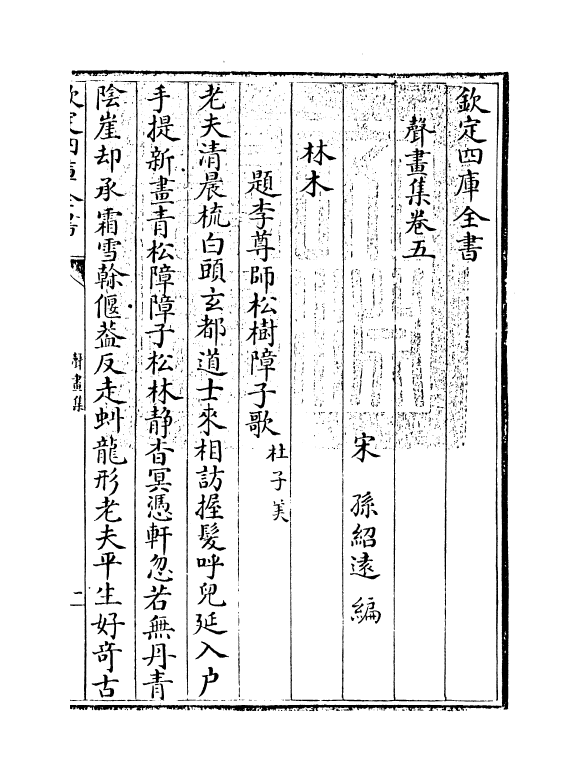 欽定四庫全書
聲畫集卷五
宋 孫紹遠 編
林木
題李尊師松樹障子歌 杜子美
老夫清晨梳白頭玄都道士來相訪握髮呼兒延入户
手提新畫青松障障子松林静杳冥憑軒忽若無丹青
陰崖却承霜雪榦偃葢反走虯龍形老夫平生好奇古
欽定四庫全書
聲畫集